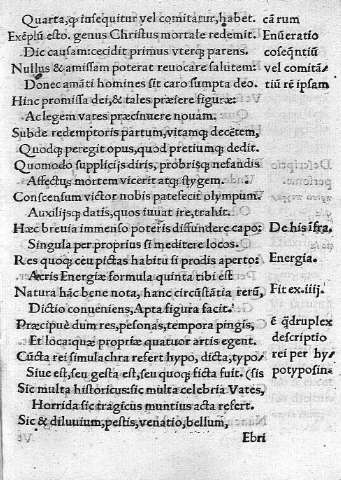 Quarta, ꝙ insequitur vel comitatur, habet.
Exẽplũ esto. genus Christus mortale redemit.
Dic causam: cecidit primus vterqꝫ parens.
Nullus & amissam poterat reuocare salutem:
Donec amãti homines sit caro sumpta deo.
Hinc promissa dei, & tales præsere figuræ:
Ac legem vates præcinuere nouam.
Subde redemptoris partum, vitamqꝫ decẽtem,
Quodqꝫ peregit opus, quod pretiumqꝫ dedit.
Quomodo supplicijs diris, probrisqꝫ nefandis
Affectus mortem vicerit atqꝫ stygem.
Conscensum victor nobis patefecit olympum.
Auxilijsqꝫ datis, quos iuuat ire, trahit.
Hæc breuia immenso poteris diffundere capo:
Singula per proprius si meditere locos.
Res quoqꝫ ceu pictas habitu si prodis aperto:
Acris Energiæ formula quinta tibi est
Natura hãc bene nota, hanc circũstãtia rerũ,
Dictio conueniens, Apta figura facit.
Præcipuè dum res, pesonas, tempora pingis,
Et loca: quæ propriæ quatuor artis egent.
Cũcta rei simulachra refert hypo, dicta, typo/
Siue est, seu gesta est, seu quoqꝫ ficta fuit. (sis
Sic multa historicus: sic multa celebria Vates,
Horrida sic tragicus muntius acta refert.
Sic & diluuium, pestis, venatio, bellum,
Ebri
cãrum
Enũeratio
coseqñtiũ
vel comitã/
tiũ rẽ ipsam
De his ifra.
Energia.
Fit ex .iiij.
ẽ q̃druplex
descriptio
rei per hy/
potyposin